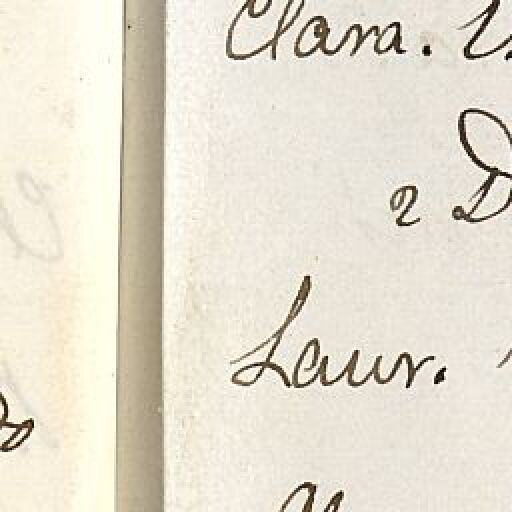 Clara.
2 D
Laur.